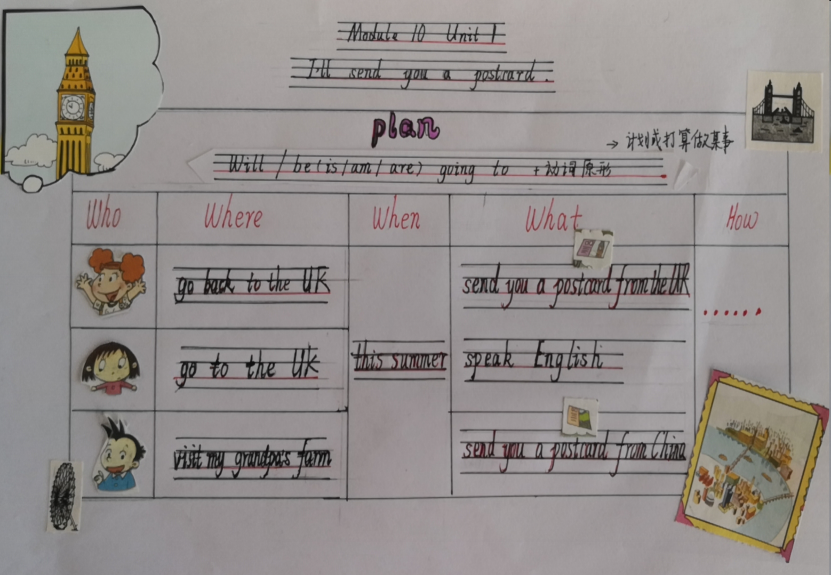 Module 10 Unit 1
I'll send you a postcard.
plan
→ 计划或打算做某事
Will / be (is / am / are) going to + 动词原形
Who Where When What How
go back to the UK send you a postcard from the UK ......
go to the UK this summer speak English
visit my grandpa's farm send you a postcard from China